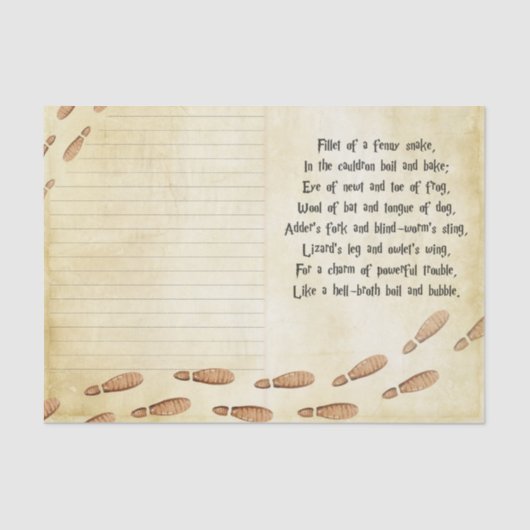 Fillet of a fenny snake,
In the cauldron boil and bake;
Eye of newt and toe of frog,
Wool of bat and tongue of dog,
Adder's fork and blind-worm's sting,
Lizard's leg and owlet's wing,
For a charm of powerful trouble,
Like a hell-broth boil and bubble.